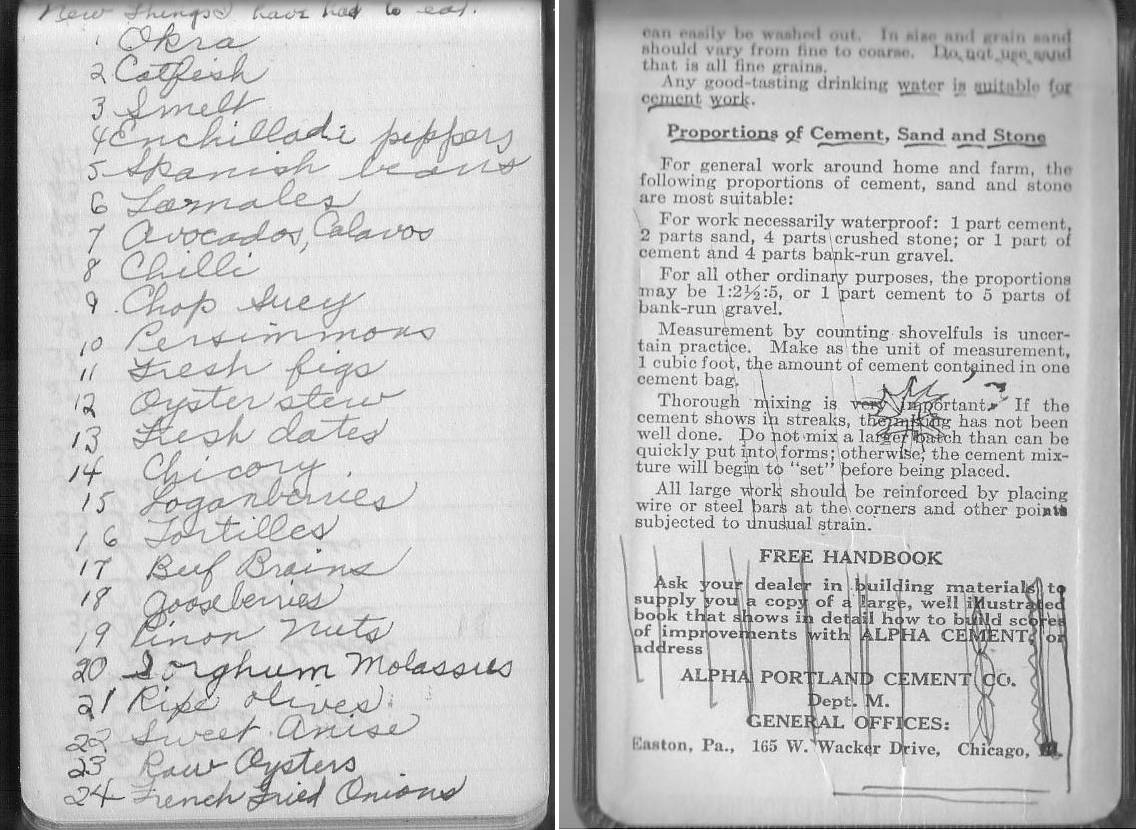 New Things I have had to eat.
1 Okra
2 Catfish
3 Smelt
4 Enchilladi peppers
5 Spanish beans
6 Tamales
7 Avocados, Calavos
8 Chilli
9. Chop Suey
10 Persimmons
11 Fresh figs
12 Oyster stew
13 Fresh dates
14 Chicory.
15 Loganberries
16 Tortilles
17 Beef Brains
18 Gooseberries
19 Pinon Nuts
20 Sorghum Molassus
21 Ripe olives.
22 Sweet Anise
23 Raw Oysters
24 French Fried Onions
can easily be washed out. In size and grain sand
should vary from fine to coarse. Do not use sand
that is all fine grains.
Any good-tasting drinking water is suitable for
cement work.
Proportions of Cement, Sand and Stone
For general work around home and farm, the
following proportions of cement, sand and stone
are most suitable:
For work necessarily waterproof: 1 part cement,
2 parts sand, 4 parts crushed stone; or 1 part of
cement and 4 parts bank-run gravel.
For all other ordinary purposes, the proportions
may be 1:2½:5, or 1 part cement to 5 parts of
bank-run gravel.
Measurement by counting shovelfuls is uncer-
tain practice. Make as the unit of measurement,
1 cubic foot, the amount of cement contained in one
cement bag.
Thorough mixing is very important. If the
cement shows in streaks, the mixing has not been
well done. Do not mix a larger batch than can be
quickly put into forms; otherwise, the cement mix-
ture will begin to "set" before being placed.
All large work should be reinforced by placing
wire or steel bars at the corners and other points
subjected to unusual strain.
FREE HANDBOOK
Ask your dealer in building materials to
supply you a copy of a large, well illustrated
book that shows in detail how to build scores
of improvements with ALPHA CEMENT, or
address
ALPHA PORTLAND CEMENT CO.
Dept. M.
GENERAL OFFICES:
Easton, Pa., 165 W. Wacker Drive, Chicago, Ill.